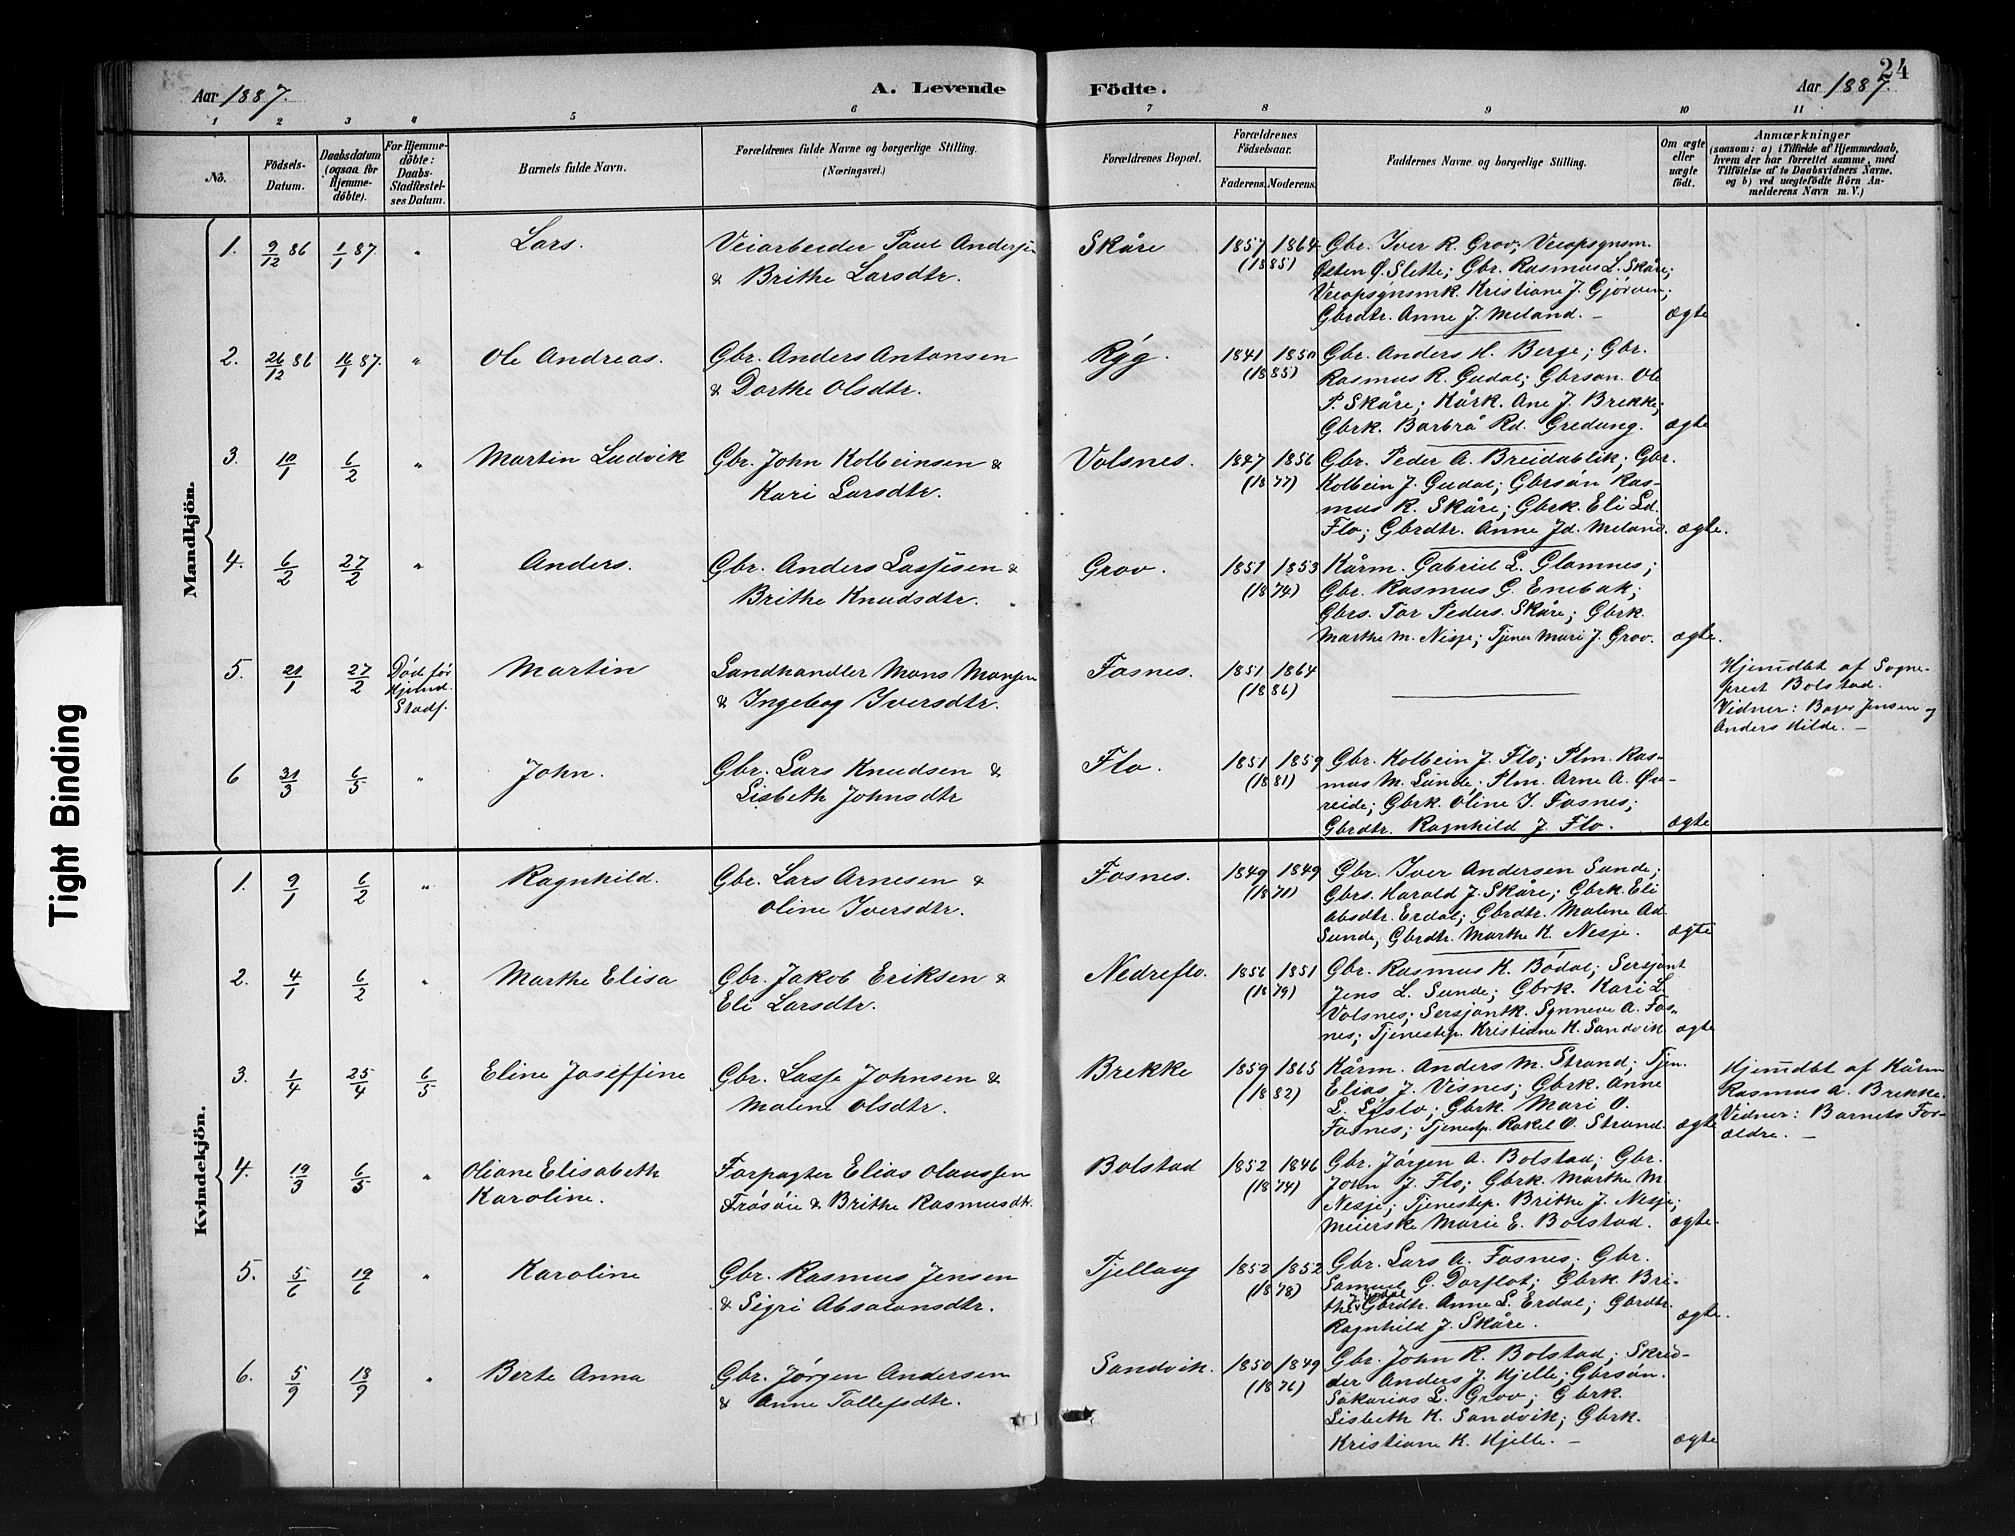 24
Aar 1887.
A. Levende Födte.
Aar 1887.
1 2 3 4 5 6 7 8 9 10 11
No.
Födsels-Datum.
Daabsdatum (ogsaa for Hjemme-döbte).
For Hjemme-döbte: Daabs-Stadfæstel-ses Datum.
Barnets fulde Navn.
Forældrenes fulde Navne og borgerlige Stilling.
(Næringsvei.)
Forældrenes Bopæl.
Forældrenes Födselsaar.
Faderens. Moderens.
Faddernes Navne og borgerlige Stilling.
Om ægte eller uægte födt.
Anmærkninger
(saasom: a) i Tilfælde af Hjemmedaab,
hvem der har forrettet samme, med
Tilföielse af to Daabsvidners Navne.
og b) ved uægtefödte Börn An-
melderens Navn m. V.)
Mandkjön.
1. 9/12 86 1/1 87. " Lars. Veiarbeider Paul Andersen
& Brithe Larsdtr.
Skåre 1857 1864 (1885)
Gbr. Iver R. Grov; Veiopsynsm.
Østen Ø. Slette; Gbr. Rasmus L. Skåre;
Veiopsynsmk. Kristiane J. Gjørven;
Gbrdtr. Anne J. Meland. – ægte
2. 26/12 86 16/1 87. " Ole Andreas. Gbr. Anders Antonsen
& Dorthe Olsdtr.
Ryg. 1841 1850 (1885)
Gbr. Anders H. Berge; Gbr.
Rasmus R. Gudal; Gbrsøn. Ole
P. Skåre; Kårk. Ane J. Brekke;
Gbrk. Barbrå Rd. Gredung. ægte
3. 10/1 6/2 " Martin Ludvik Gbr. John Kolbeinsen &
Kari Larsdtr.
Volsnes. 1847 1856 (1877)
Gbr. Peder A. Breidablik; Gbr.
Kolbein J. Gudal; Gbrsøn Ras-
mus R. Skåre; Gbrk. Eli Ld.
Flo; Gbrdtr. Anne Jd. Meland. ægte.
4. 6/2 27/2 " Anders. Gbr. Anders Lassesen &
Brithe Knudsdtr.
Grov. 1851 1853 (1874)
Kårm. Gabriel L. Glomnes;
Gbr. Rasmus G. Enebak;
Gbrs. Tor Peders. Skåre; Gbrk.
Marthe M. Nesje; Tjener Mari J. Grov. ægte.
5. 21/1 27/2 Død før Hjemd. Stadf. Martin Landhandler Mons Monsen
& Ingebog Iversdtr.
Fosnes. 1851 1864 (1886)
Hjemdbt af Sogne-
prest Bolstad.
Vidner: Bager Jensen og
Anders Hilde. –
6 31/3 6/5 " John. Gbr. Lars Knudsen &
Lisbeth Johnsdtr
Flo. 1851 1859 (1881)
Gbr. Kolbein J. Flo; Plm. Ras-
mus M. Sunde; Plm. Arne A. Øv-
reide; Gbrk. Oline I. Fosnes;
Gbrdtr. Ragnhild J. Flo. ægte
Kvindekjön.
1. 9/1 6/2 " Ragnhild. Gbr. Lars Arnesen &
Oline Iversdtr.
Fosnes. 1849 1849 (1871)
Gbr. Iver Andersen Sunde;
Gbrs. Harald J. Skåre; Gbrk. Eli
Absdtr. Erdal; Gbrdtr. Malene Ad
Sunde, Gbrdtr. Marthe K. Nesje. ægte
2. 4/1 6/2 " Marthe Elisa Gbr. Jakob Eriksen &
Eli Larsdtr.
Nedreflo. 1856 1851 (1879)
Gbr. Rasmus K. Bødal; Sersjant
Jens L. Sunde; Gbrk. Kari L.
Volsnes; Sersjantk. Synneve A. Fos-
nes; Tjenestep. Kristiane K. Sandvik ægte
3. 1/4 25/4 6/5 Eline Joseffine Gbr. Lasse Johnsen &
Malene Olsdtr.
Brekke 1859 1865 (1882)
Kårm. Anders M. Strand; Tjen.
Elias J. Visnes; Gbrk. Anne
L. Løslo; Gbrk. Mari O.
Fosnes; Tjenestp. Rakel O. Strand. ægte
Hjemdbt af Kårm
Rasmus A. Brekke.
Vidner: Barnets For-
ældre. –
4. 19/3 6/5 " Oliane Elisabeth
Karoline.
Forpagter Elias Olaussen
Frøsøie & Brithe Rasmusdtr.
Bolstad 1852 1846 (1874)
Gbr. Jørgen A. Bolstad; Gbr.
John J. Flo; Gbrk. Marthe M.
Nesje; Tjenestep. Brithe J. Nesje;
Meierske Marie E. Bolstad. ægte.
5. 5/6 19/6 " Karoline Gbr. Rasmus Jensen
& Sigri Absalonsdtr.
Tjellaug 1852 1852 (1878)
Gbr. Lars A. Fosnes; Gbr.
Samuel C. Dorflot; Gbrk. Bri-
the J. Erdal Gbrdtr. Anne L. Erdal; Gbrdtr.
Ragnhild J. Skåre. ægte.
6. 5/9 18/9 " Berte Anna Gbr. Jørgen Andersen
& Anne Tollefsdtr.
Sandvik. 1850 1849 (1876)
Gbr. John R. Bolstad; Skred-
der Anders J. Hjelle; Gbrsøn.
Sakarias L. Grov; Gbrk.
Lisbeth K. Sandvik; Gbrk.
Kristiane K. Hjelle. – ægte
Tight Binding